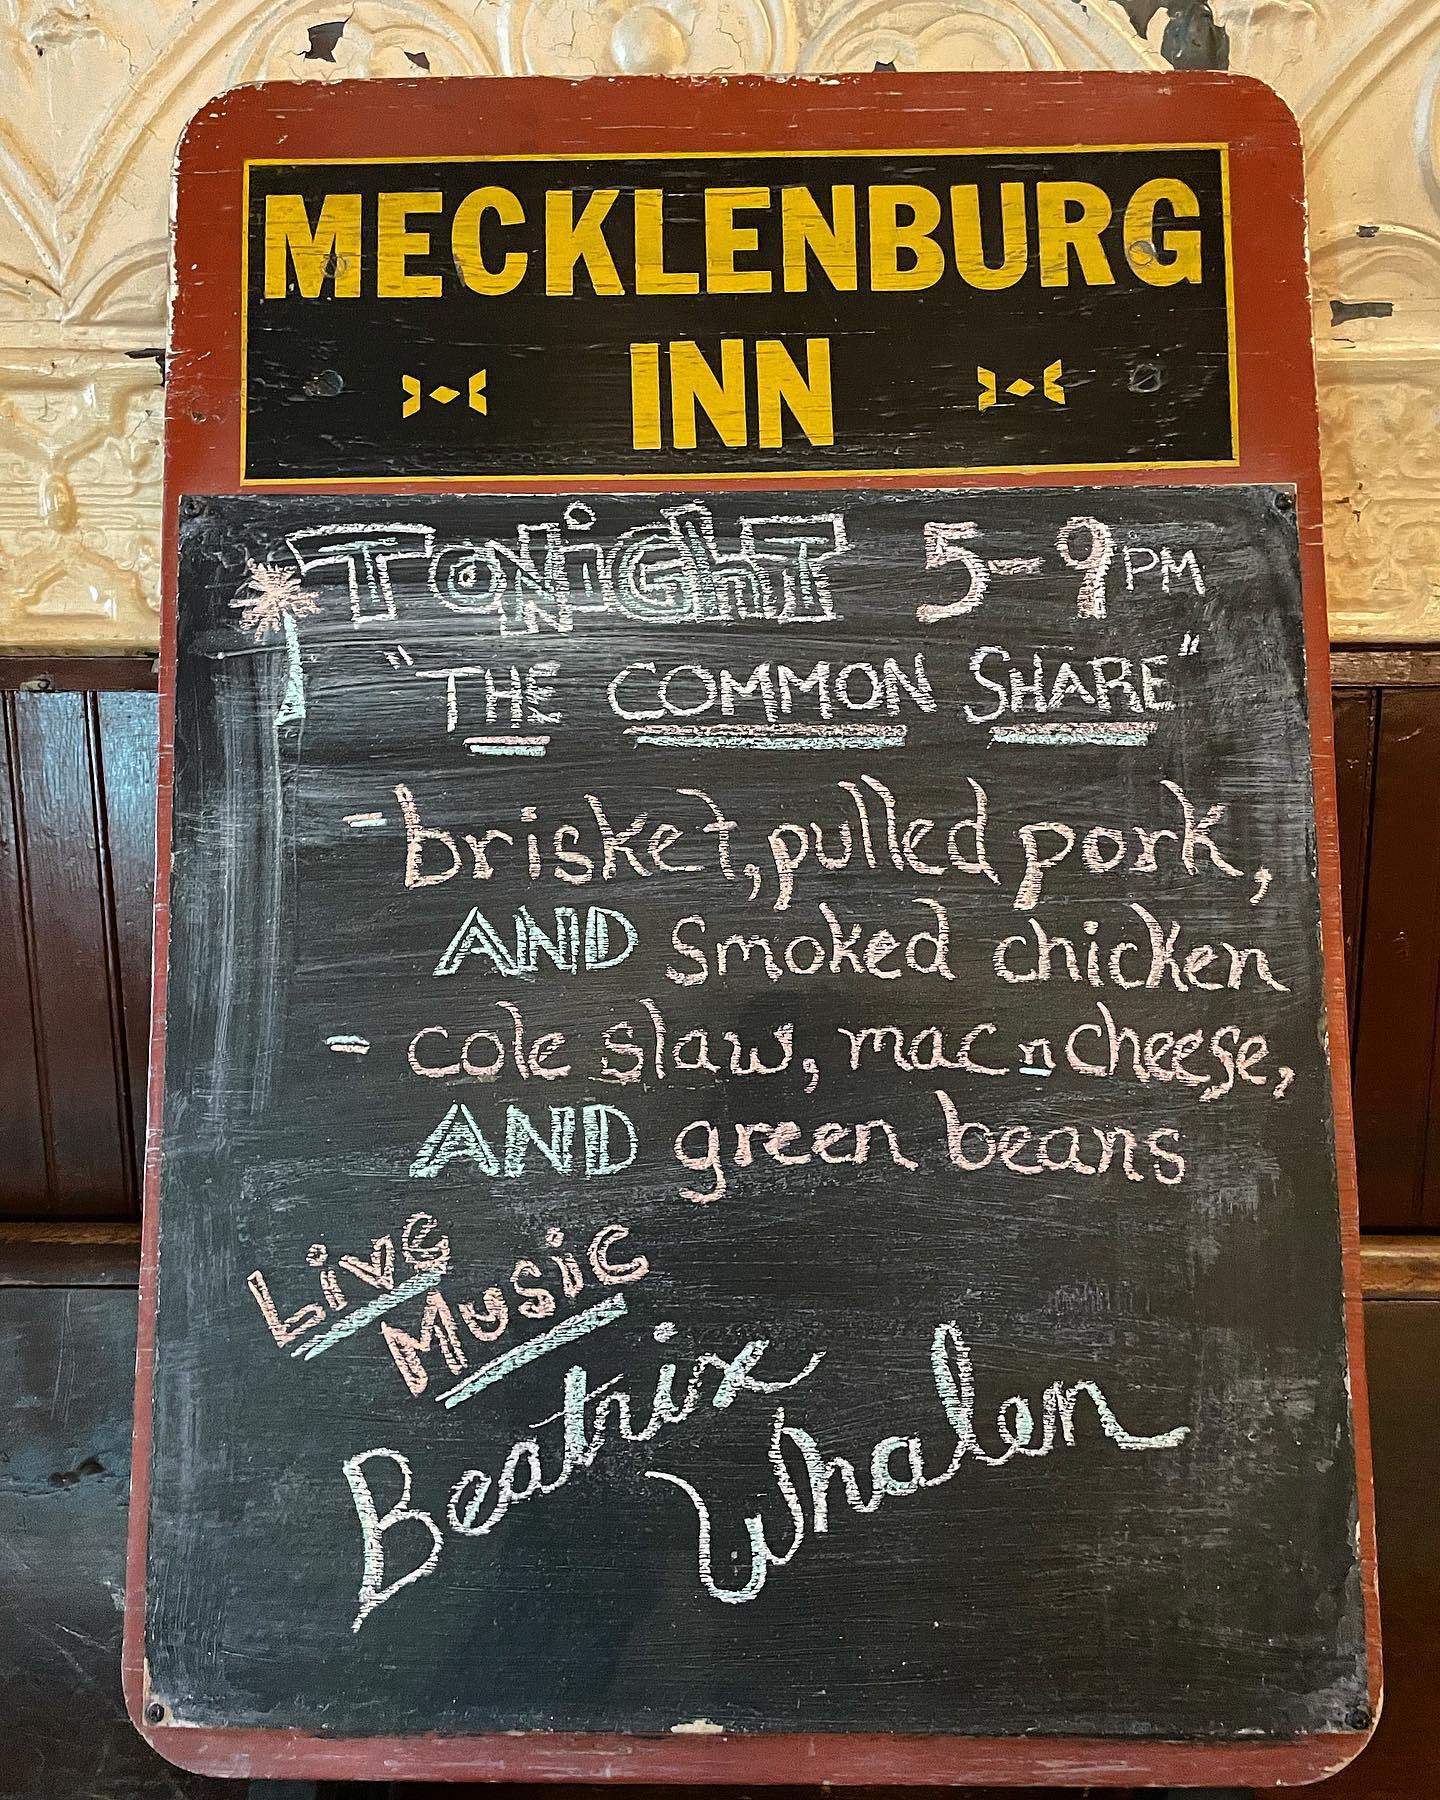 MECKLENBURG
INN
TONiGhT 5-9PM
"THE COMMON SHARE"
- brisket, pulled pork,
AND smoked chicken
- cole slaw, mac n cheese,
AND green beans
Live
Music
Beatrix
Whalen